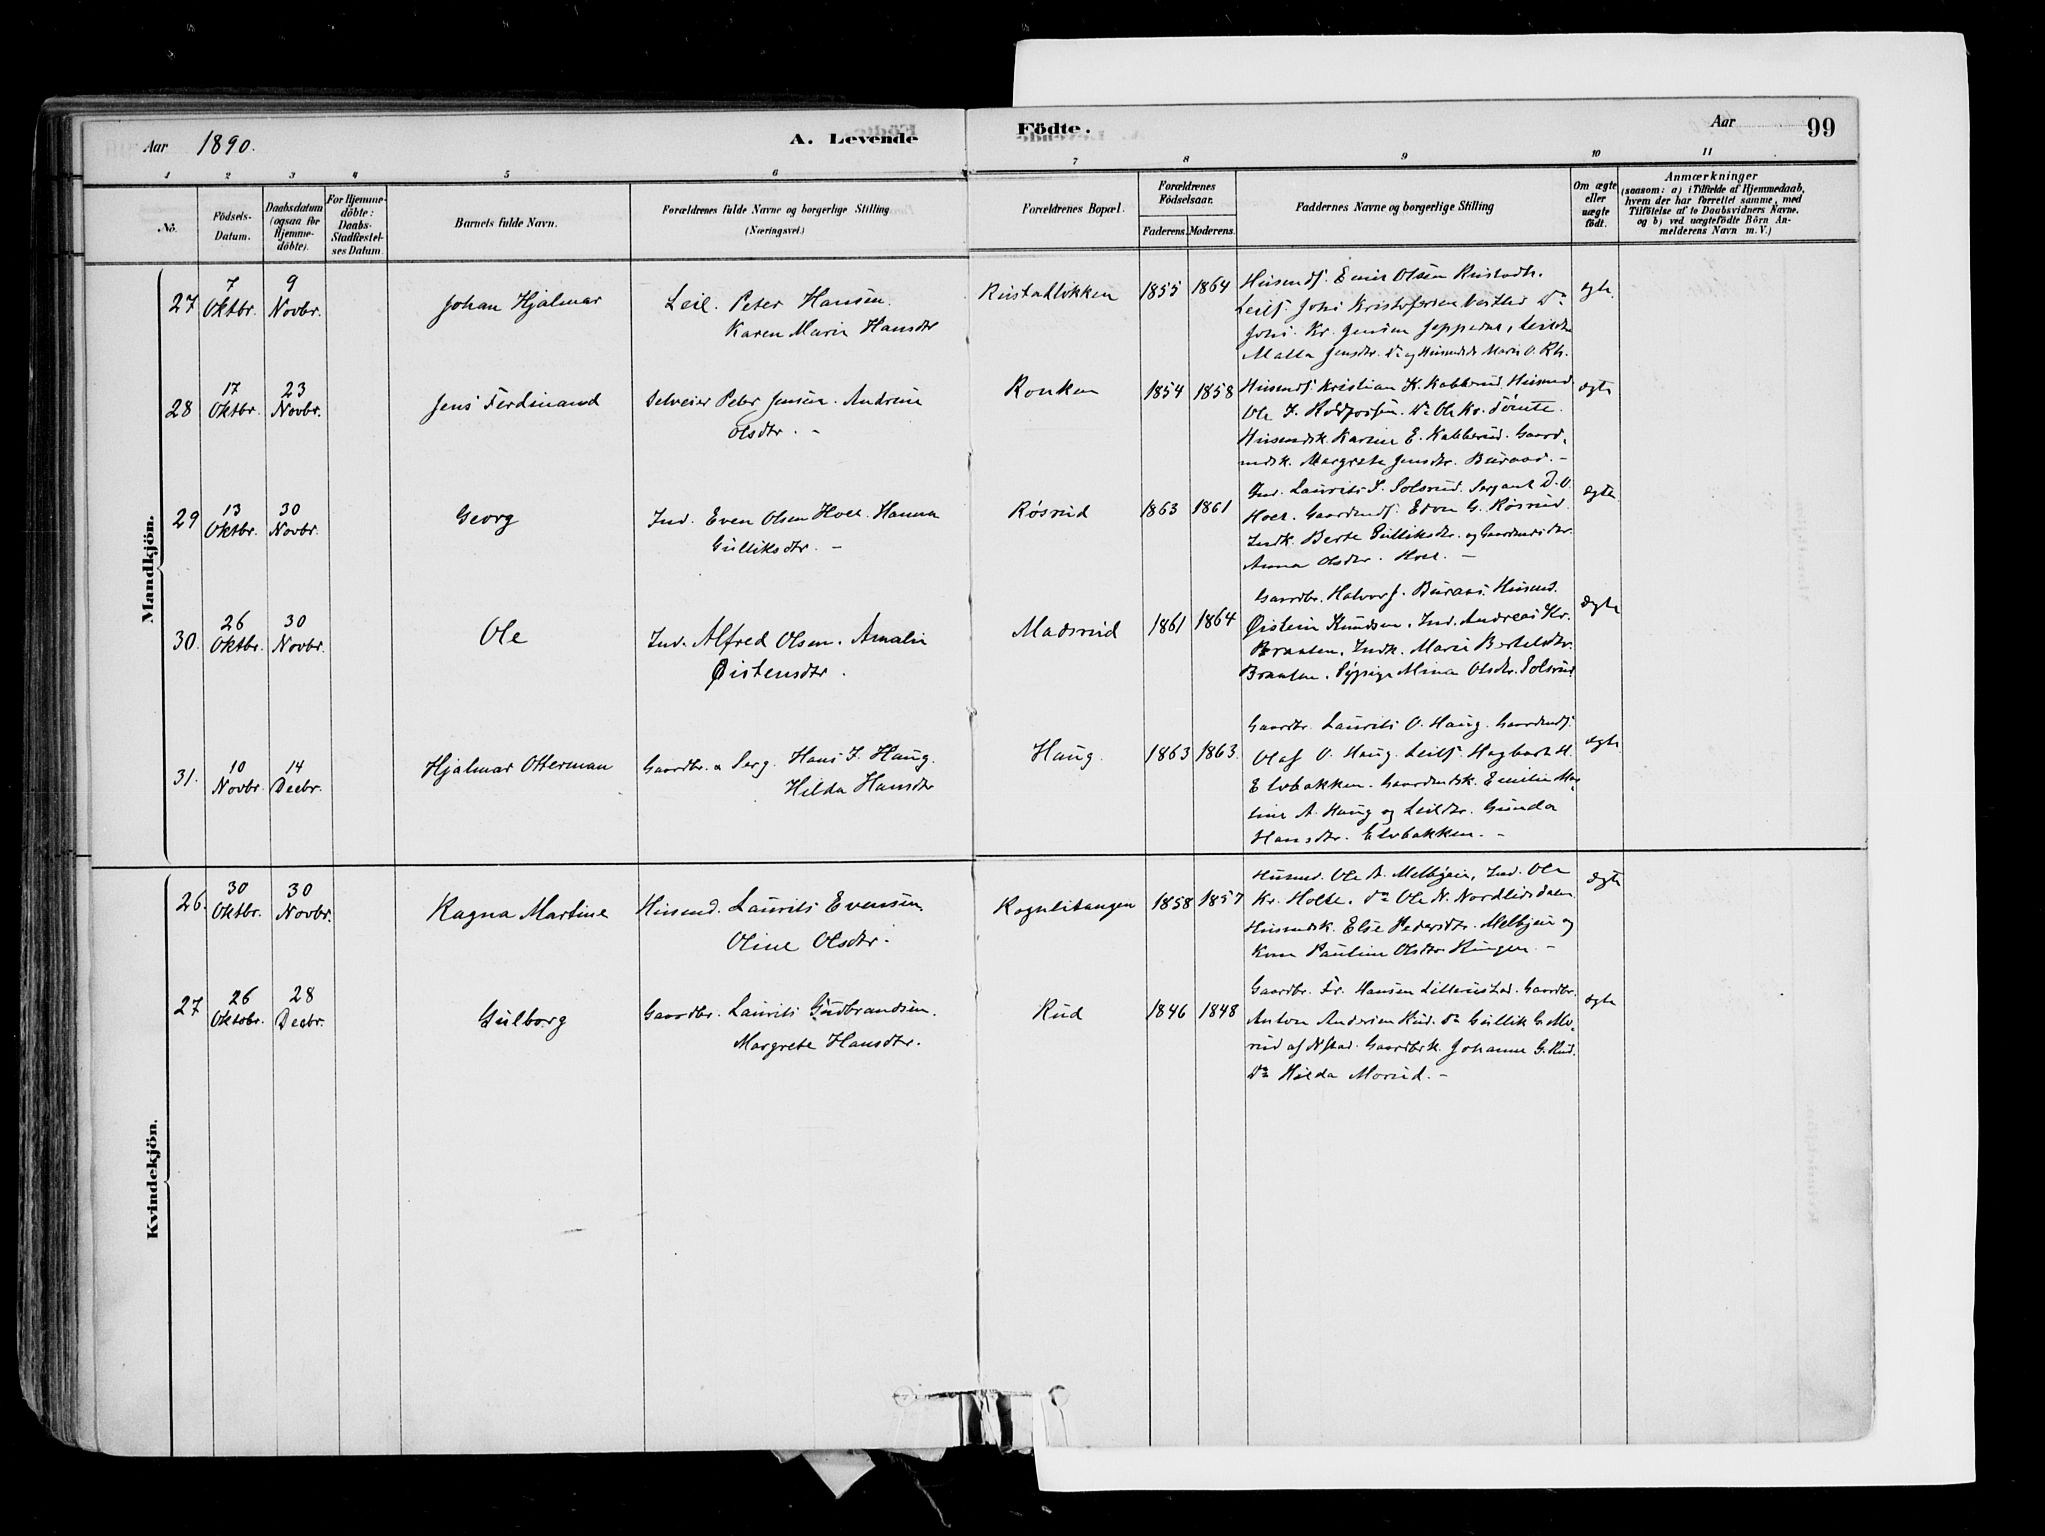 Aar 1890.
A. Levende
Födte.
Aar
99
1 2 3 4 5 6 7 8 9 10 11
No.
Födsels-
Datum.
Daabsdatum
(ogsaa for
Hjemme-
döbte).
For Hjemme-
döbte:
Daabs-
Stadfæstel-
ses Datum.
Barnets fulde Navn.
Forældrenes fulde Navne og borgerlige Stilling
(Næringsvei.)
Forældrenes Bopæl.
Forældrenes
Födselsaar.
Faderens. Moderens.
Faddernes Navne og borgerlige Stilling
Om ægte
eller
uægte
født.
Anmærkninger
(saasom: a) i Tilfælde af Hjemmedaab,
hvem der har forrettet samme, med
Tilföielse af to Daabsvidners Navne.
og b) ved uægtefödte Börn An-
melderens Navn m. V.)
Mandkjön.
27 7 Oktbr. 9 Novbr.
Johan Hjalmar
Leil. Peter Hansen.
Karen Marie Hansdtr
Rustadløkken
1855 1864
Husmdf. Emil Olsen Rustadh.
Leilf. Johs Kristofersen Do
Johs. Kr. Jensen
Jensdtr. Do og Marie O.
egte.
28 17 Oktbr. 23 Novbr.
Jens Ferdinand
Selveier Peter Jensen. Andrine
Olsdtr. -
Ronken
1854 1858
Husmdf. Kristian K. Kabberud. Husmd.
Ole Do Ole Kr. Tømte.
Husmdsk. Karine E. Kabberud. Gaard-
mdsk. Margrete Jensdtr. Buraas. -
ægte
29 13 Oktbr. 30 Novbr.
Georg
Ind. Even Olsen Hoel. Hanna
Gulliksdtr. -
Røsrud
1863 1861
Ind. Laurits S. Solsrud. Sergant O. O.
Hoel. Gaardmdf. Even G. Røsrud.
Indk. Berte Gulliksdtr. og
Anna Olsdtr. Hoel. -
ægte
30. 26 Oktbr. 30 Novbr.
Ole
Ind. Alfred Olsen. Amalie
Øistensdtr.
Madsrud
1861 1864
Gaardbr. Halvor J. Buraas. Husmd.
Øistein Knudsen. Ind. Andreas Kr.
Braaten. Indk. Marie Bertelsdtr.
Braaten. Sypige Mina Olsdtr. Solsrud
ægte
31. 10 Novbr. 14 Decbr.
Hjalmar Otterman
Gaardbr. & Serg. Hans J. Haug.
Hilda Hansdtr
Haug.
1863 1863.
Gaardbr. Laurits O. Haug. Gaardmdf.
Olaf O. Haug. Leilf. Hagbart H.
Elvbakken. Gaardmdsk. Emilie Ma-
tine A. Haug og Leildtr. Gunda
Hansdtr. Elvbakken. -
ægte
Kvindekjön.
26. 30 Oktbr. 30 Novbr.
Ragna Martine
Husmd. Laurits Evensen.
Oline Olsdtr.
Rognlitangen
1858 1857
Husmd. Ole A. Melbyeie, Ind. Ole
Kr. Holte. do Ole N. Nordlidsdalen
Husmdsk. Elise Pedersdtr. Melbyeie og
Pauline Olsdtr Ringen. -
ægte
27 26 Oktobr. 28 Decbr.
Gulborg
Gaardbr. Laurits Gudbrandsen.
Margrete Hansdtr.
Rud
1846 1848
Gaardbr. Fr. Hansen Lillerustad. Gaardbr.
Anton Andersen Rud. do Gullik G. Mo-
rud af Nstad. Gaardbrk. Johanne G. Rud.
Do Hilda Morud. -
ægte